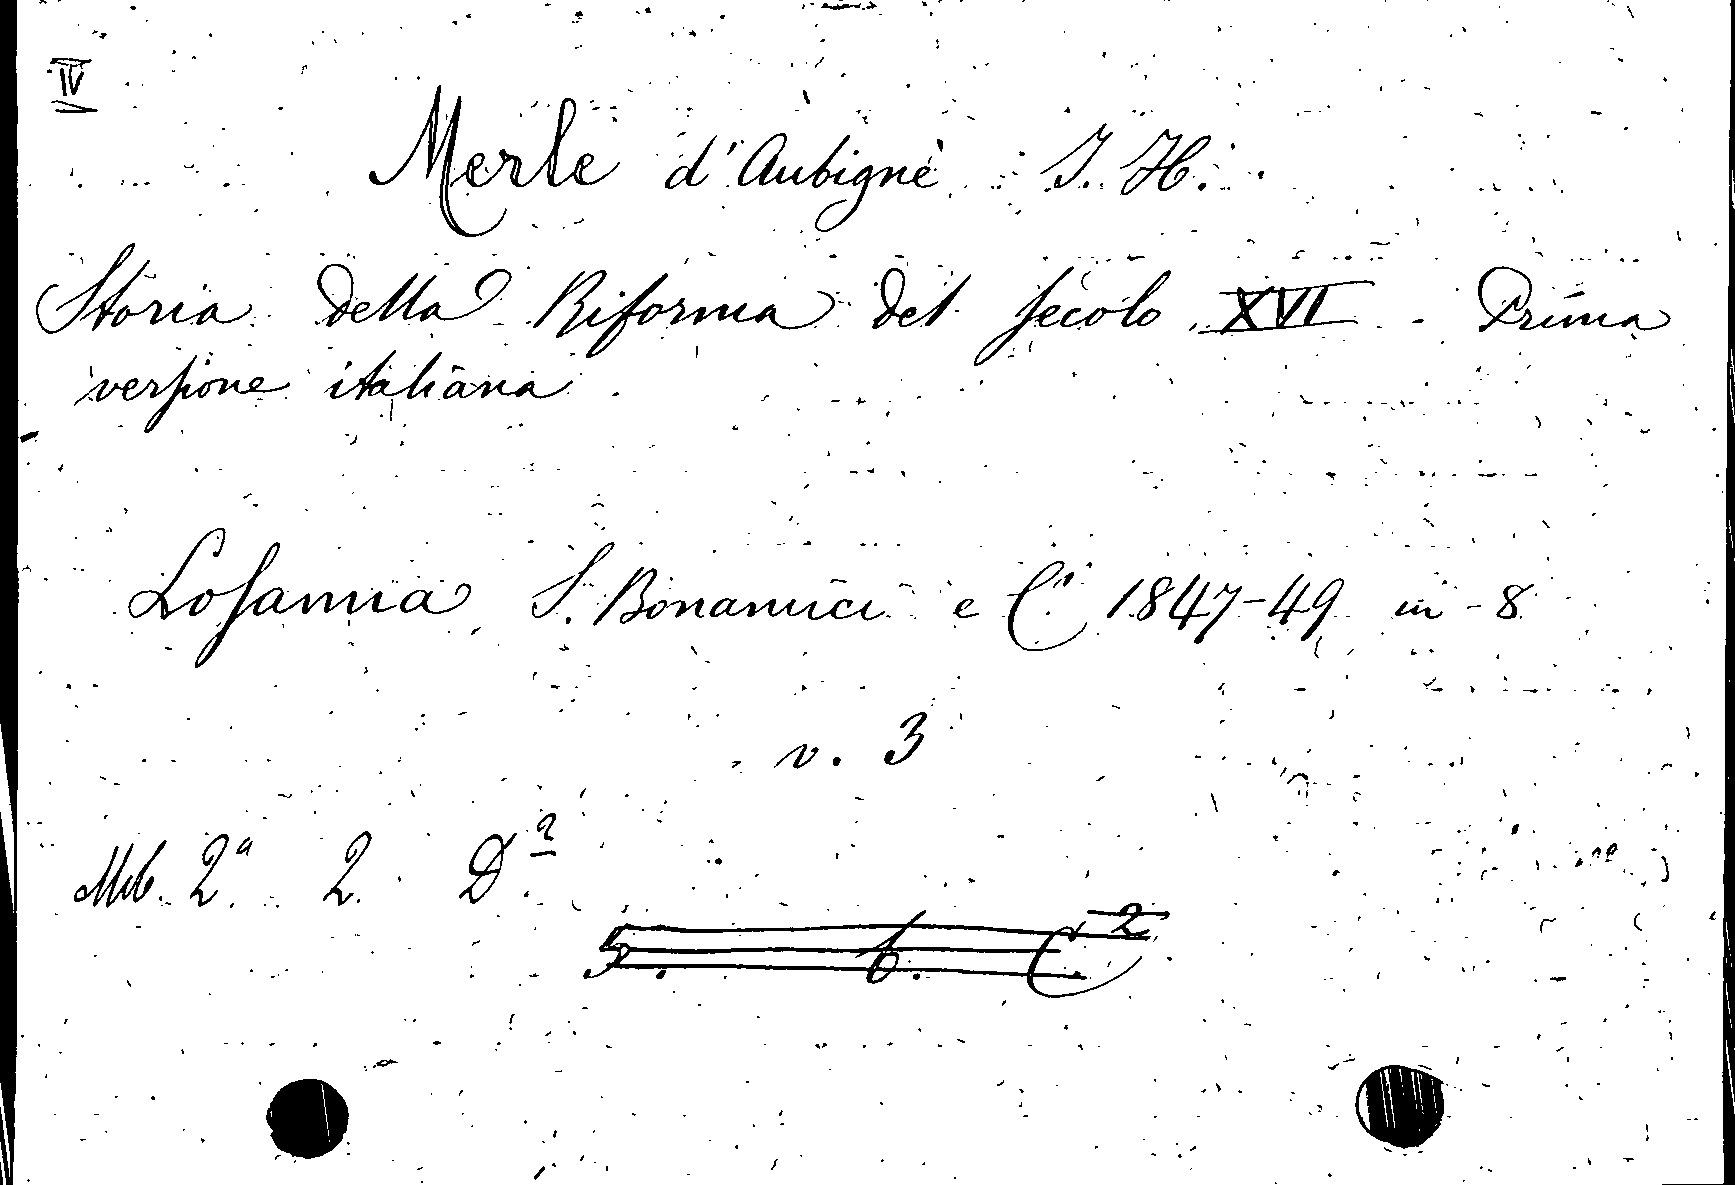 IV
Merle d'Aubignè J. H.
Storia della Riforma del secolo XVI. Prima
versione italiana.
Losanna, S. Bonamici e C.i 1847-49 in-8
v. 3
2ª 2. D.2
5. 6. C.2